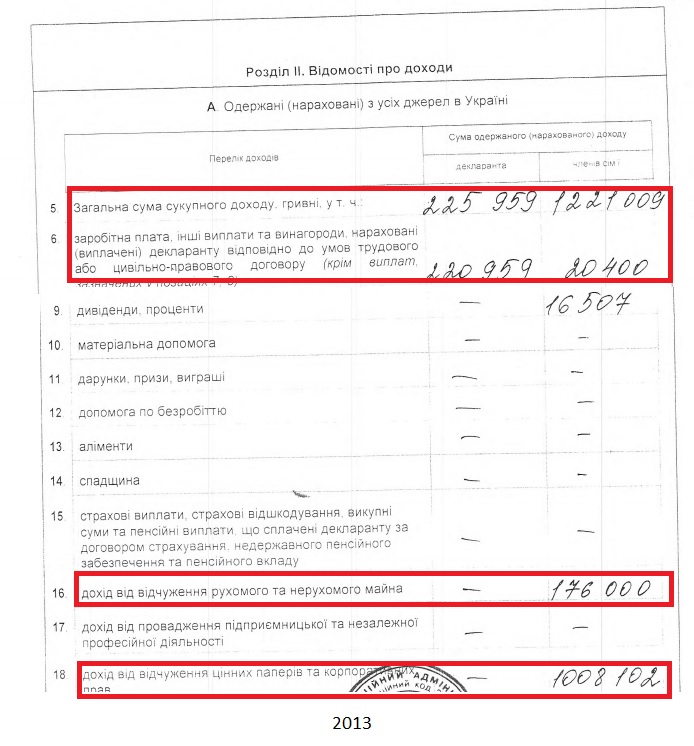 Розділ II. Відомості про доходи
А. Одержані (нараховані) з усіх джерел в Україні
Перелік доходів
Сума одержаного (нарахованого) доходу
декларанта
членів сім'ї
5. Загальна сума сукупного доходу, гривні, у т. ч.: 225 959 1221 009
6. заробітна плата, інші виплати та винагороди, нараховані
(виплачені) декларанту відповідно до умов трудового
або цивільно-правового договору (крім виплат, 220 959 20 400
зазначених у позиціях 7, 8)
9. дивіденди, проценти — 16 507
10. матеріальна допомога — —
11. дарунки, призи, виграші — —
12. допомога по безробіттю — —
13. аліменти — —
14. спадщина — —
15. страхові виплати, страхові відшкодування, викупні
суми та пенсійні виплати, що сплачені декларанту за
договором страхування, недержавного пенсійного — —
забезпечення та пенсійного вкладу
16. дохід від відчуження рухомого та нерухомого майна — 176 000
17. дохід від провадження підприємницької та незалежної — —
професійної діяльності
18. дохід від відчуження цінних паперів та корпоративних — 1008 102
прав
2013